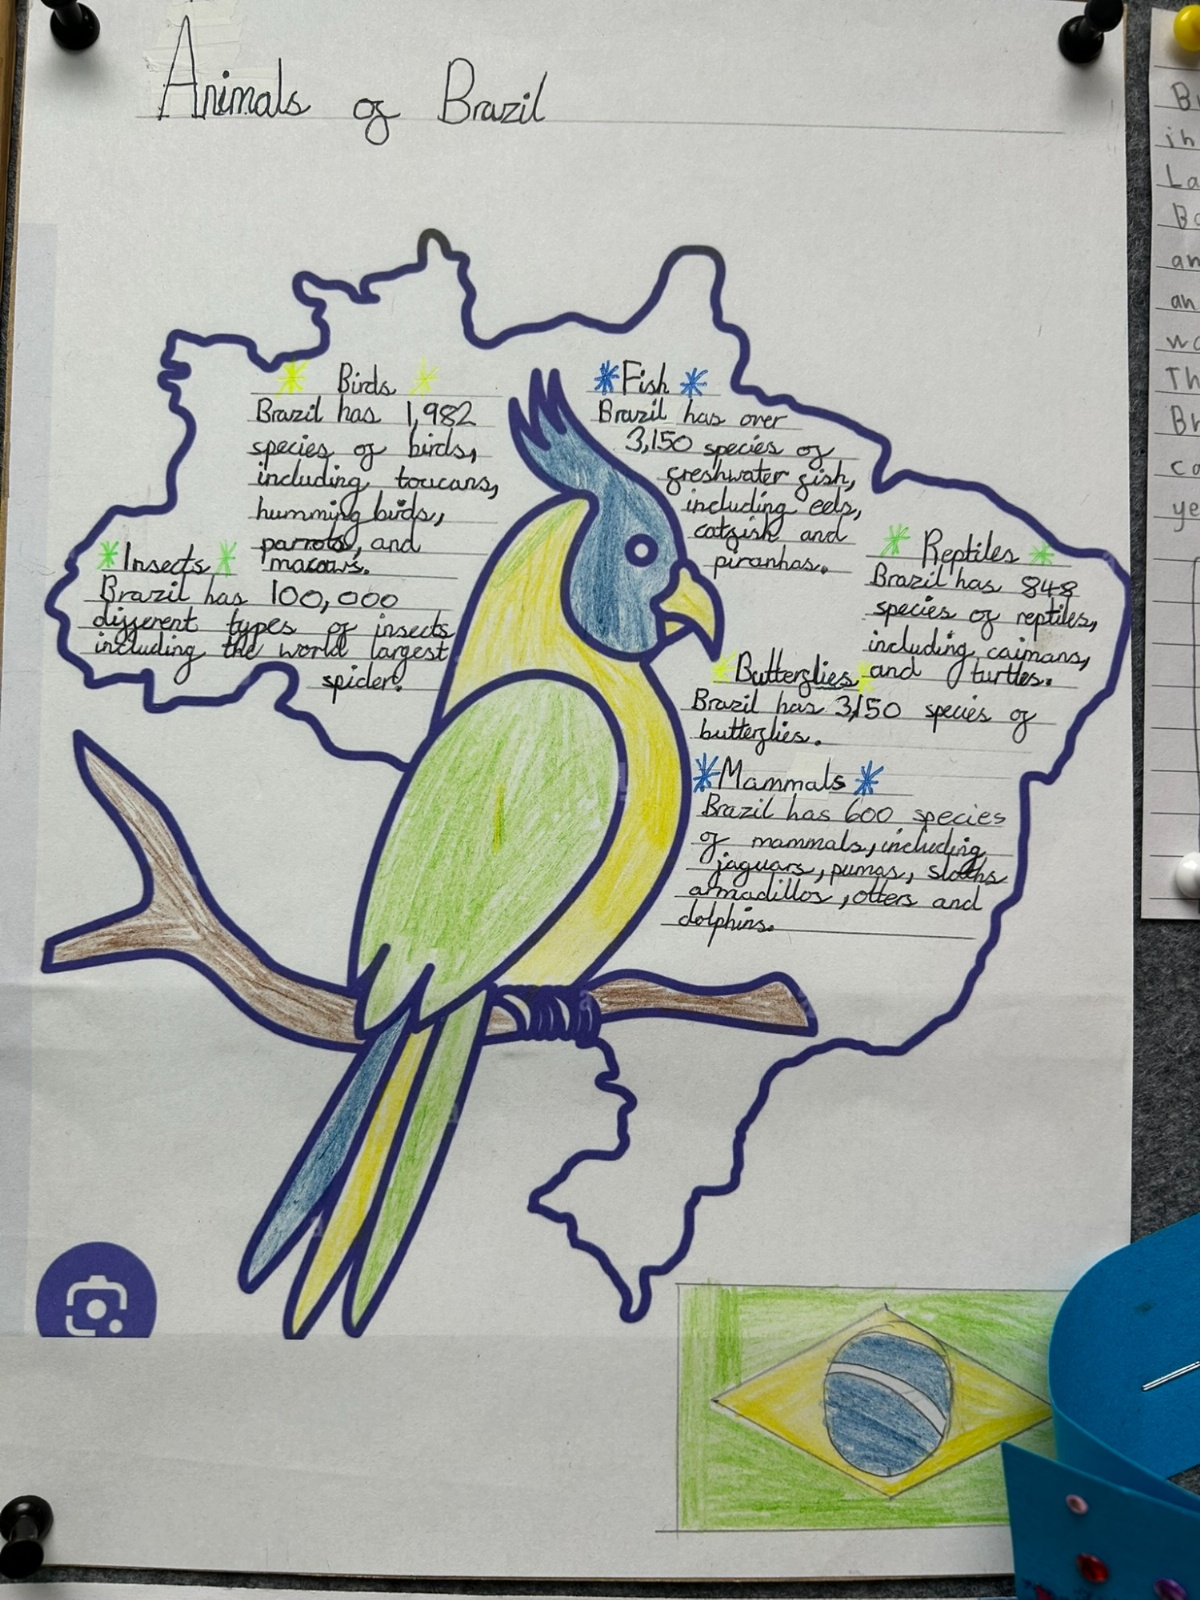 Animals of Brazil
Birds
Brazil has 1,982
species of birds,
including toucans,
humming birds,
parrots, and
macaws.
Insects
Brazil has 100,000
different types of insects
including the world largest
spider.
Fish
Brazil has over
3,150 species of
freshwater fish,
including eels,
catfish and
piranhas.
Reptiles
Brazil has 848
species of reptiles,
including caimans,
and turtles.
Butterflies
Brazil has 3,150 species of
butterflies.
Mammals
Brazil has 600 species
of mammals, including
jaguars, pumas, sloths
armadillos, otters and
dolphins.
Br
in
La
Bo
an
an
wa
Th
Br
co
ye